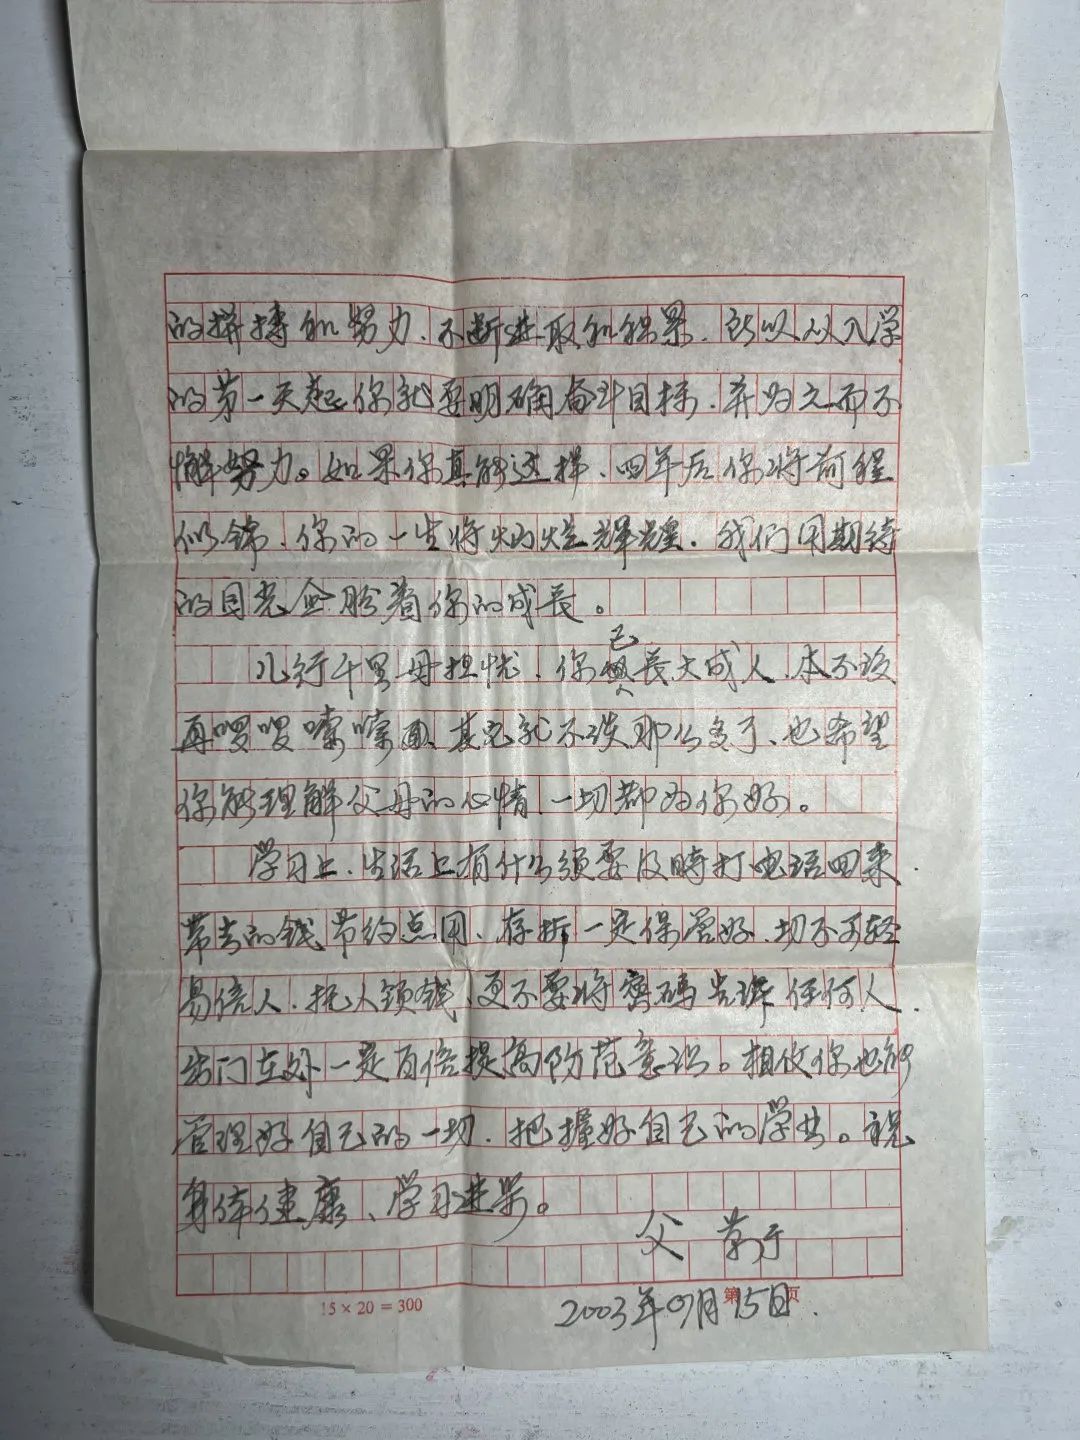 的拼搏和努力、不断进取和积累、所以从入学
的第一天起你就要明确奋斗目标、并为之而不
懈努力。如果你真能这样、四年后你将前程
似锦、你的一生将灿烂辉煌、我们用期待
的目光企盼着你的成长。
儿行千里母担忧、你已长大成人、本不该
再啰啰嗦嗦、其它就不谈那么多了、也希望
你能理解父母的心情一切都为你好。
学习上、生活上有什么须要及時打电话回来、
带去的钱节约点用、存折一定保管好、切不可轻
易信人、托人领钱、更不要将密码告诉任何人、
出门在外一定百倍提高防范意识。相收你也能
管理好自己的一切、把握好自己的学业。祝
身体健康、学习进步。
父 草于
2003年09月15日.
15×20=300
第 页